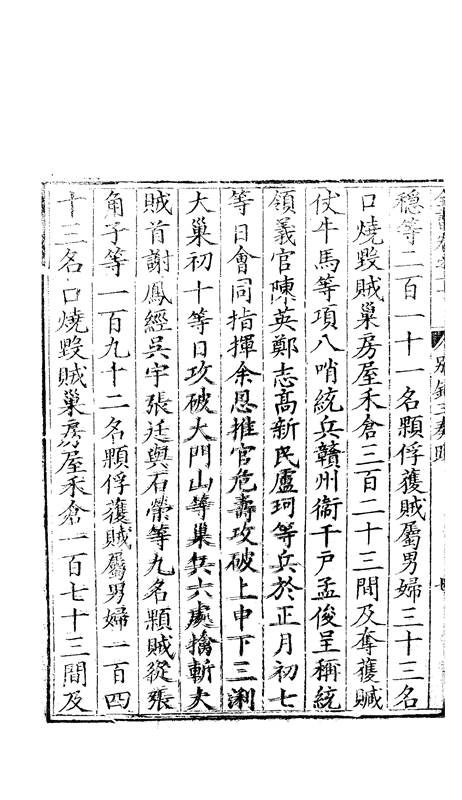 穩等二百一十一名顆俘獲賊屬男婦三十三名
口燒毀賊巢房屋禾倉三百二十三間及奪獲贓
仗牛馬等項八哨統兵贛州衞千戶孟俊呈稱統
領義官陳英鄭志高新民盧珂等兵於正月初七
等日會同指揮余恩推官危壽攻破上中下三浰
大巢初十等日攻破大門山等巢共六處擒斬大
賊首謝鳳經吳宇張廷與石榮等九名顆賊從張
角子等一百九十二名顆俘獲賊屬男婦一百四
十三名口燒毀賊巢房屋禾倉一百七十三間及